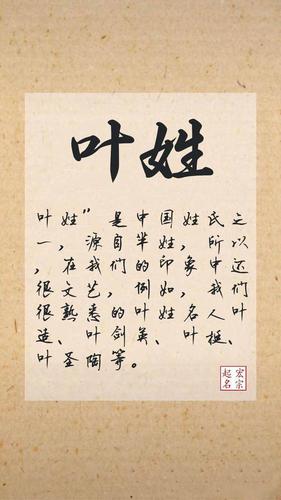 叶姓
叶姓”是中国姓氏之
一，源自半姓，所以
，在我们的印象中还
很文艺，例如，我们
很熟悉的叶姓名人叶
造、叶剑英、叶挺、
叶圣陶等。
宏宗
起名